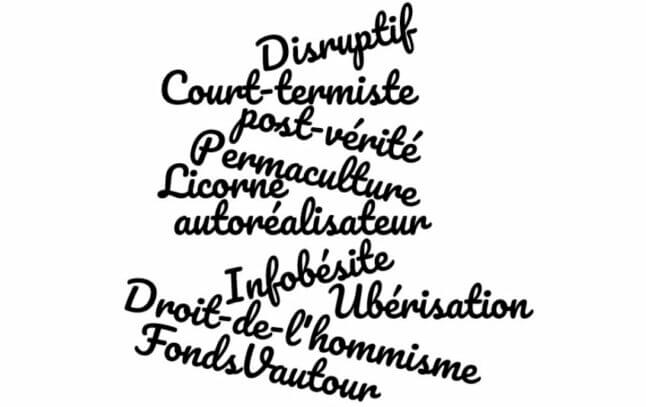 Disruptif
Court-termiste
post-vérité
Permaculture
Licorne
autoréalisateur
Infobésite
Ubérisation
Droit-de-l'hommisme
FondsVautour